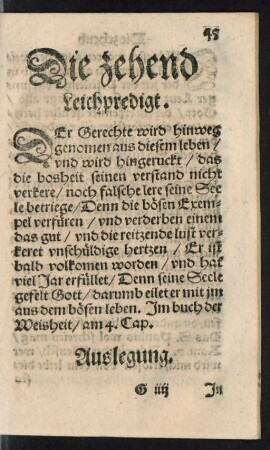 45
Die zehend
Leichpredigt.
DEr Gerechte wird hinweg
genomen aus diesem leben/
vnd wird hingeruckt/ das
die bosheit seinen verstand nicht
verkere/ noch falsche lere seine See
le betriege/ Denn die bösen Exem-
pel verfüren/ vnd verderben einem
das gut/ vnd die reitzende lust ver-
keret vnschüldige hertzen/ Er ist
bald volkomen worden/ vnd hat
viel Jar erfüllet/ Denn seine Seele
gefelt Gott/ darumb eilet er mit jm
aus dem bösen leben. Im buch der
Weisheit/ am 4. Cap.
Auslegung.
G iiij Jn